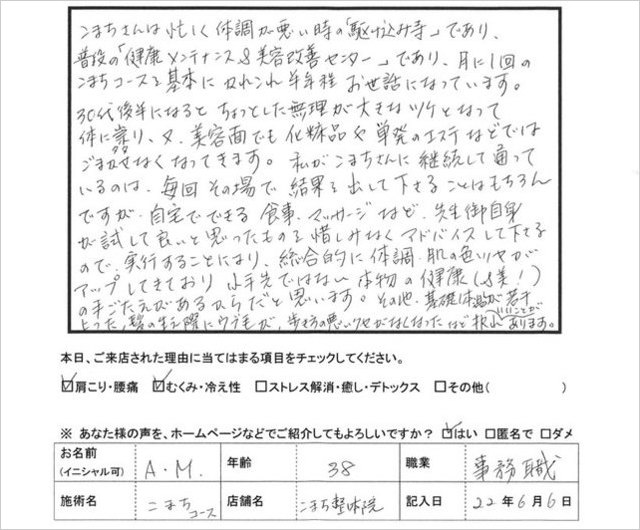 こまちさんは忙しく体調が悪い時の「駆け込み寺」であり、
普段の「健康メンテナンス&美容改善センター」であり、月に1回の
こまちコースを基本にかれこれ半年程お世話になっています。
30代後半になるとちょっとした無理が大きなツケとなって
体に響り、又、美容面でも化粧品や単発のエステなどでは
ごまかせなくなってきます。私がこまちさんに継続して通って
いるのは、毎回その場で結果を出して下さることはもちろん
ですが、自宅でできる食事、マッサージなど、先生御自身
が試して良いと思ったものを惜しみなくアドバイスして下さる
ので、実行することにより、総合的に体調、肌の色ツヤが
アップしてきており小手先ではない本物の健康(&美!)
の手ごたえがあるからだと思います。その他、基礎体温が若干
上った、髪の生え際にウブ毛が、歩き方の悪いクセがなくなったなど沢山いいことがあります。
本日、ご来店された理由に当てはまる項目をチェックしてください。
☑肩こり・腰痛 ☑むくみ・冷え性 □ストレス解消・癒し・デトックス □その他( )
※ あなた様の声を、ホームページなどでご紹介してもよろしいですか? ☑はい □匿名で □ダメ
お名前 (イニシャル可) A.M. 年齢 38 職業 事務職
施術名 こまちコース 店舗名 こまち整体院 記入日 22年6月6日